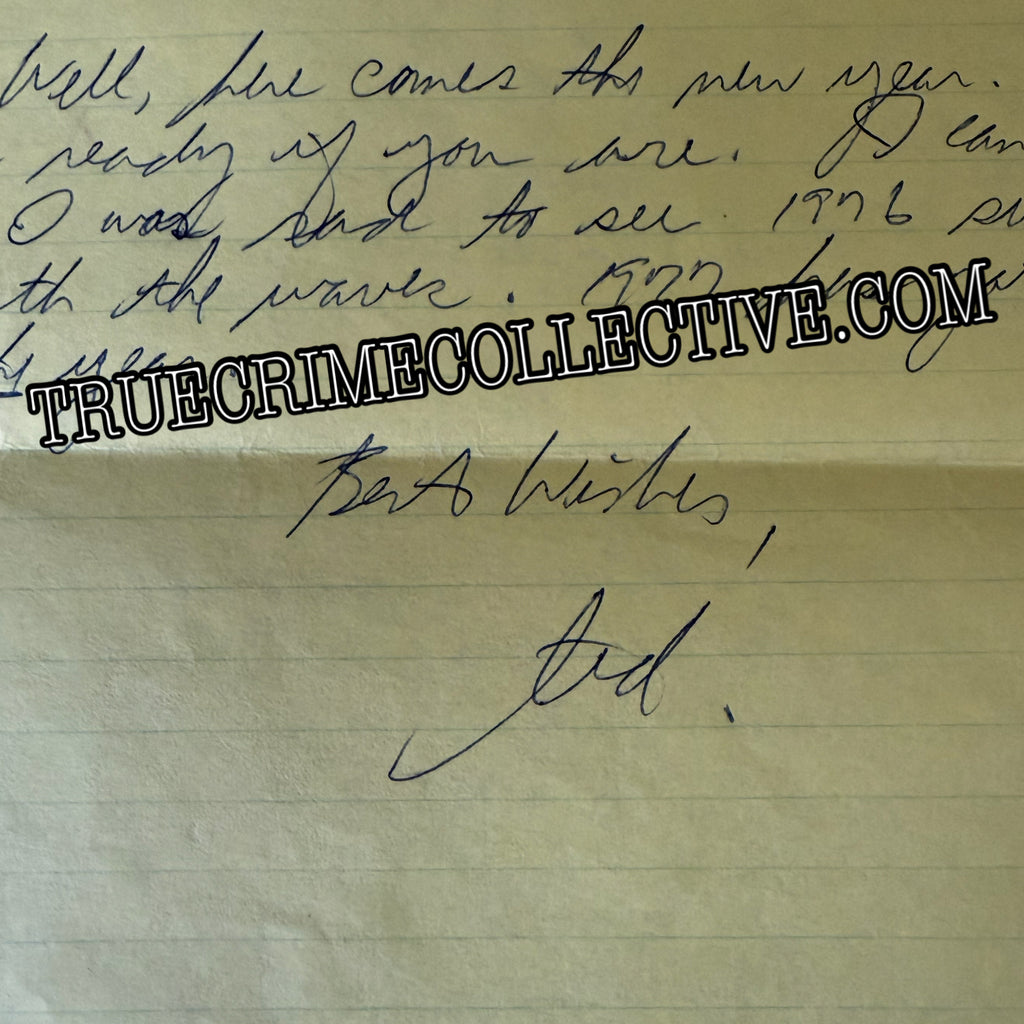 Well, here comes the new year.
ready if you are. I can
I was sad to see 1976 s
th the waves. 1977 has
year.
TRUECRIMECOLLECTIVE.COM
Best Wishes,
ted.